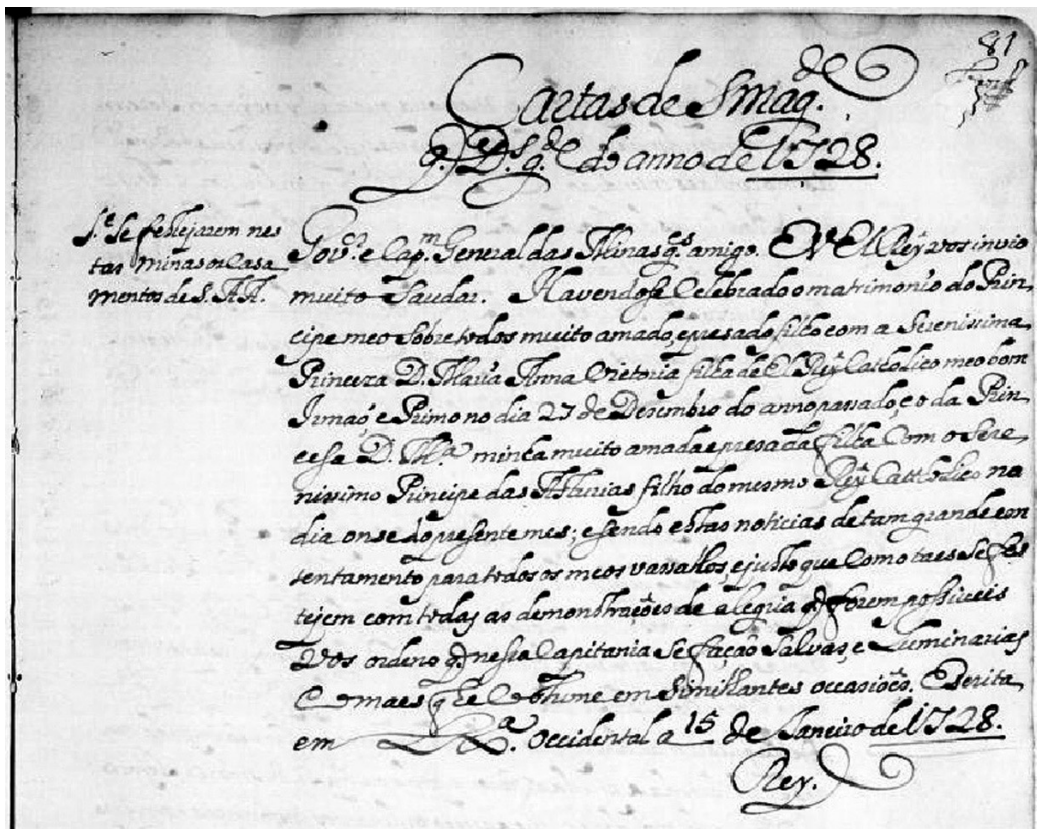 81
Cartas de S Mag.de
q. D.s g.de do anno de 1728.
S.e se festejarem nes
tas Minas os Casa
mentos de S. AA.
Gov.or e Cap.m General das Minas g.es amigo. Eu El Rey vos invio
muito Saudar. Havendose Celebrado o matrimonio do Prin,
cipe meo Sobre todos muito amado, e presado filho com a Serenissima
Princeza D. Maria Anna Victoria filha de El Rey Catholico meo bom
Irmaõ, e Primo no dia 27 de Dezembro do anno passado, e o da Prin,
cesa D. M.a minha muito amada e presada filha Com o Sere,
nissimo Principe das Asturias filho do mesmo Rey Cattholico no
dia onse do presente mes; e sendo estas noticias de tam grande con
tentamento para todos os meos vassallos, e justo que Como taes se fes
tejem com todas as demonstraçoẽs de alegria q. forem possiveis
Vos ordeno q. nessa Capitania se façaõ Salvas, e Luminarias
e o maes que he Costume em Similhantes occasioẽs. Escrita
em Lx.a Occidental a 15 de Janeiro de 1728.
Rey.